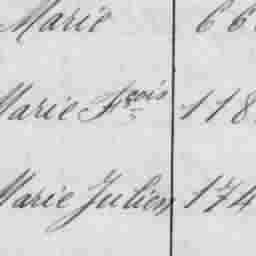 Marie 66
Marie Fcois 118
Marie Julien 174